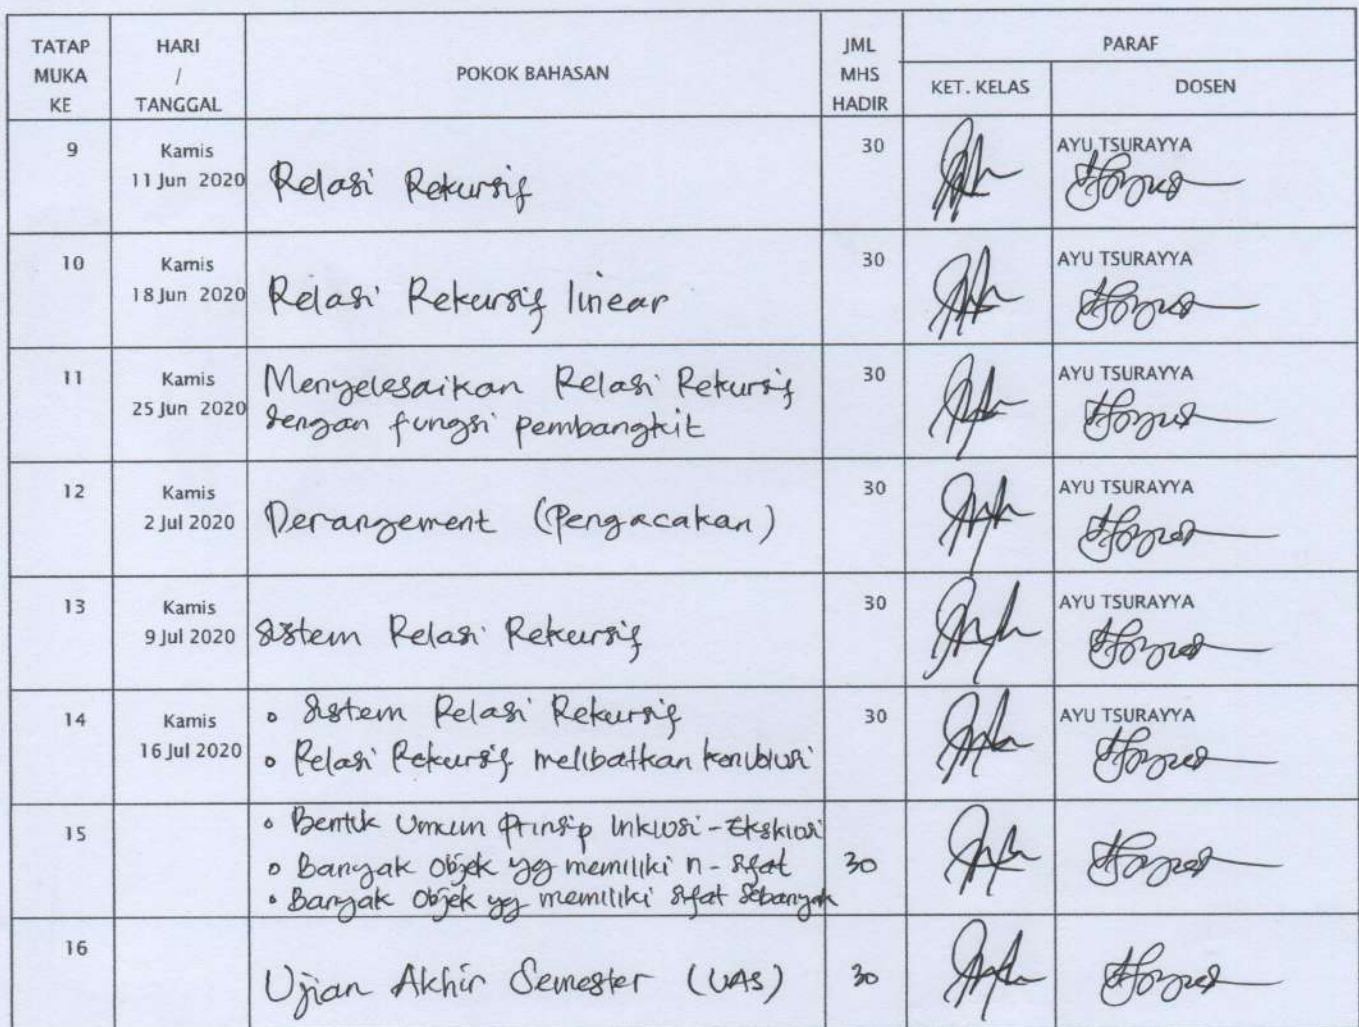 TATAP MUKA KE HARI / TANGGAL POKOK BAHASAN JML MHS HADIR PARAF
KET. KELAS DOSEN
9 Kamis 11 Jun 2020 Relasi Rekursif 30 AYU TSURAYYA
10 Kamis 18 Jun 2020 Relasi Rekursif linear 30 AYU TSURAYYA
11 Kamis 25 Jun 2020 Menyelesaikan Relasi Rekursif 30 AYU TSURAYYA
dengan fungsi pembangkit
12 Kamis 2 Jul 2020 Derangement (Pengacakan) 30 AYU TSURAYYA
13 Kamis 9 Jul 2020 Sistem Relasi Rekursif 30 AYU TSURAYYA
14 Kamis 16 Jul 2020 • Sistem Relasi Rekursif 30 AYU TSURAYYA
• Relasi Rekursif melibatkan konvolusi
15 • Bentuk Umum Prinsip Inklusi - Eksklusi
• Banyak Objek yg memiliki n - sifat 30
• Banyak Objek yg memiliki sifat sebanyak
16 Ujian Akhir Semester (UAS) 30